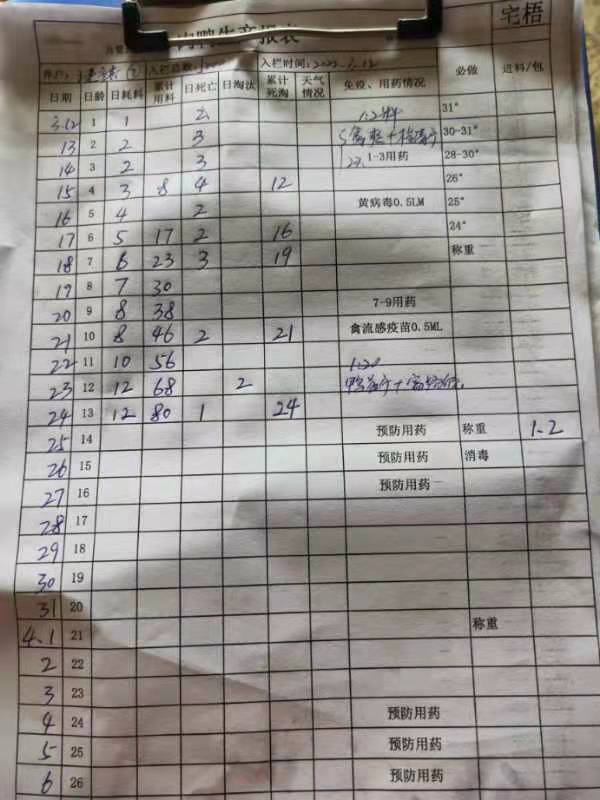 宅梧
肉鸭生产报表
入栏总数: 入栏时间:
日期 日龄 日耗料 累计用料 日死亡 日淘汰 累计死淘 天气情况 免疫、用药情况 必做 进料/包
3.12 1 1 31°
13 2 2 3 30-31°
14 3 2 3 1-3用药 28-30°
15 4 3 8 4 12 26°
16 5 4 2 黄病毒0.5LM 25°
17 6 5 17 2 16 24°
18 7 6 23 3 19 称重
19 8 7 30
20 9 8 38 7-9用药
21 10 8 46 2 21 禽流感疫苗0.5ML
22 11 10 56
23 12 12 68 2
24 13 12 80 1 24
25 14 预防用药 称重 1-2
26 15 预防用药 消毒
27 16 预防用药
28 17
29 18
30 19
31 20
4.1 21 称重
2 22
3 23
4 24 预防用药
5 25 预防用药
6 26 预防用药